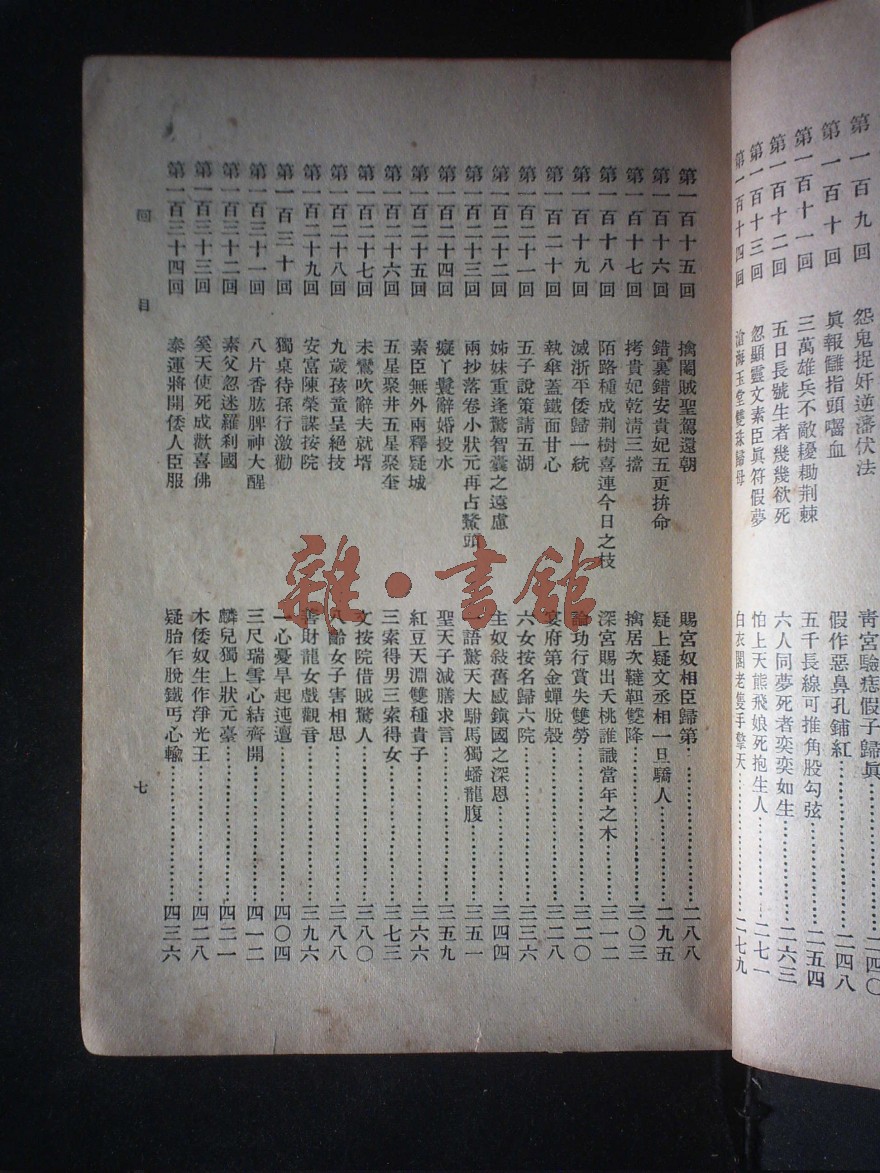 第一百九回 怨鬼捉奸逆藩伏法 靑宮驗痣假子歸眞……二四〇
第一百十回 眞報讎指頭嚙血 假作惡鼻孔鋪紅……二四八
第一百十一回 三萬雄兵不敵耰耡荆棘 五千長線可推角股勾弦……二五四
第一百十二回 五日長號生者幾幾欲死 六人同夢死者奕奕如生……二六三
第一百十三回 忽顯靈文素臣眞符假夢 怕上天熊飛娘死抱生人……二七一
第一百十四回 滄海玉堂雙珠歸母 白衣閣老隻手擎天……二七九
第一百十五回 擒閹賊聖駕還朝 賜宮奴相臣歸第……二八八
第一百十六回 錯裏錯安貴妃五更拚命 疑上疑文丞相一旦驕人……二九五
第一百十七回 拷貴妃乾淸三擋 擒居次韃靼雙降……三〇三
第一百十八回 陌路種成荆樹喜連今日之枝 深宮賜出夭桃誰識當年之木……三一二
第一百十九回 滅浙平倭歸一統 論功行賞失雙勞……三二〇
第一百二十回 執傘蓋鐵面甘心 宴府第金蟬脫殻……三二八
第一百二十一回 五子說策請五湖 六女按名歸六院……三三六
第一百二十二回 姊妹重逢驚智囊之遠慮 主奴敍舊感鎭國之深恩……三四四
第一百二十三回 兩抄落卷小狀元再占鰲頭 語驚天大駙馬獨蟠龍腹……三五一
第一百二十四回 癡丫鬟辭婚投水 聖天子減膳求言……三五九
第一百二十五回 素臣無外兩釋疑城 紅豆天淵雙種貴子……三六六
第一百二十六回 五星聚井五星聚奎 三索得男三索得女……三七三
第一百二十七回 未鸞吹辭夫就壻 文按院借賊驚人……三八〇
第一百二十八回 九歲孩童呈絕技 八齡女子害相思……三八八
第一百二十九回 安富陳榮謀按院 善財龍女戲觀音……三九六
第一百三十回 獨桌待孫行激勸 一心憂旱起迍邅……四〇四
第一百三十一回 八片香肱脾神大醒 三尺瑞雪心結齊開……四一二
第一百三十二回 素父忽迷羅刹國 麟兒獨上狀元臺……四二一
第一百三十三回 奚天使死成歡喜佛 木倭奴生作淨光王……四二八
第一百三十四回 泰運將開倭人臣服 疑胎乍脫鐵丐心輸……四三六
回目 七
雜·書館